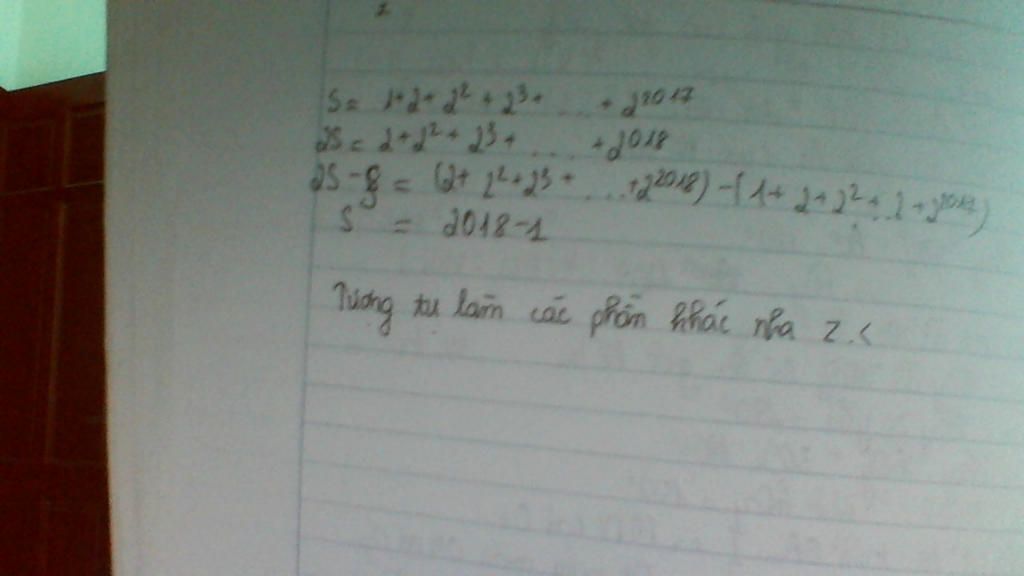 S = 1+2+2² + 2³+ ... + 2²⁰¹⁷
2S = 2+2²+ 2³+ .... +2⁰¹⁸
2S - S = (2+ 2²+2³ + ...+2²⁰¹⁸) - (1+ 2+2²+...+2²⁰¹⁷)
S = 2018-1
Tương tự làm các phần khác nha z.<